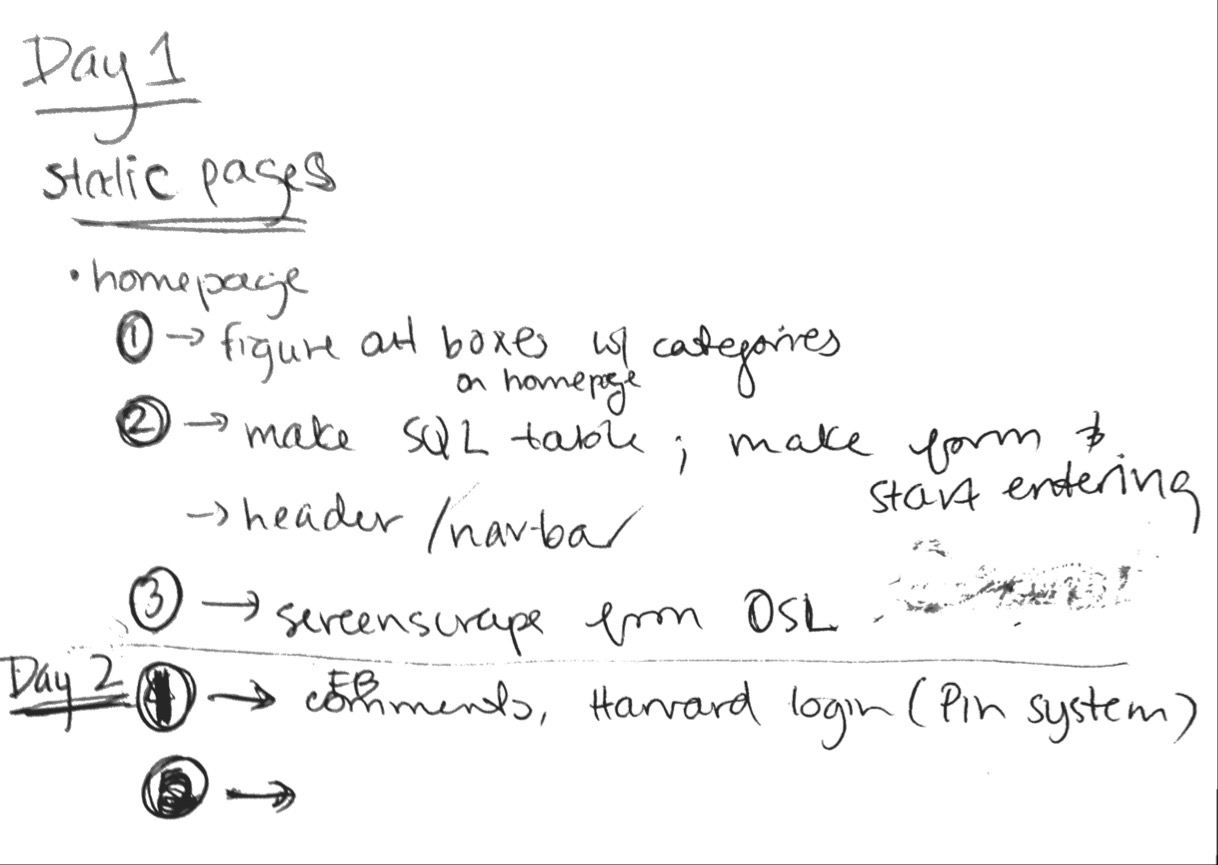 Day 1
static pages
• homepage
① → figure out boxes w/ categories
on homepage
② → make SQL table ; make form &
start entering
→ header /navbar
③ → screenscrape from OSL
Day 2 → FB comments, Harvard login (Pin system)
→